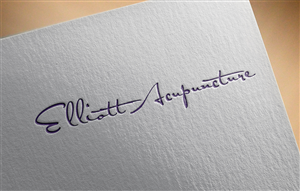 Elliott Acupuncture